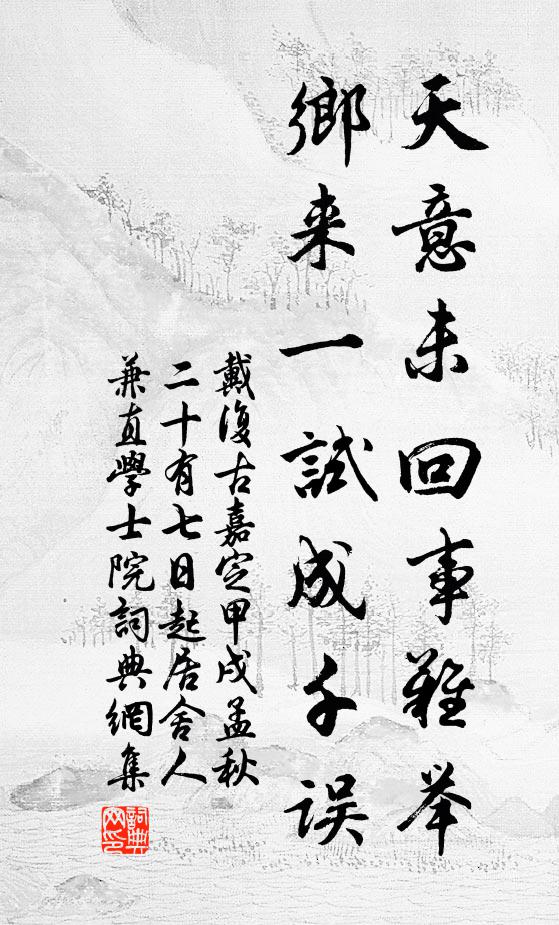 天意未回事難举
鄉来一試成千误
戴復古嘉定甲戌孟秋
二十有七日起居舍人
兼直學士院詞典網集
詞典网印